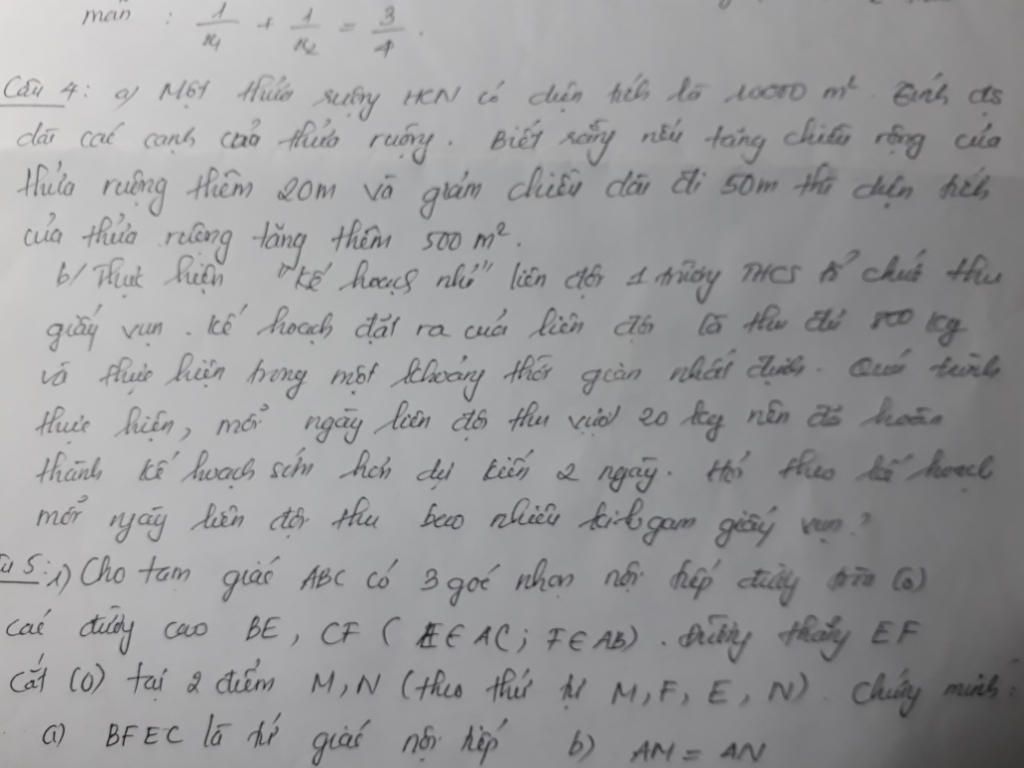 mãn : 1/x1 + 1/x2 = 3/4.
Câu 4: a) Một thửa ruộng HCN có diện tích là 10000 m². Tính độ
dài các cạnh của thửa ruộng. Biết rằng nếu tăng chiều rộng của
thửa ruộng thêm 20m và giảm chiều dài đi 50m thì diện tích
của thửa ruộng tăng thêm 500 m².
b/ Thực hiện "kế hoạch nhỏ" liên đội 1 trường THCS tổ chức thu
giấy vụn. Kế hoạch đặt ra của liên đội là thu đủ 800 kg
và thực hiện trong một khoảng thời gian nhất định. Quá trình
thực hiện, mỗi ngày liên đội thu vượt 20 kg nên đã hoàn
thành kế hoạch sớm hơn dự kiến 2 ngày. Hỏi theo kế hoạch
mỗi ngày liên đội thu bao nhiêu kilôgam giấy vụn?
5: 1) Cho tam giác ABC có 3 góc nhọn nội tiếp đường tròn (O)
các đường cao BE, CF (E ∈ AC; F ∈ AB). Đường thẳng EF
cắt (O) tại 2 điểm M, N (theo thứ tự M, F, E, N). Chứng minh:
a) BFEC là tứ giác nội tiếp b) AM = AN